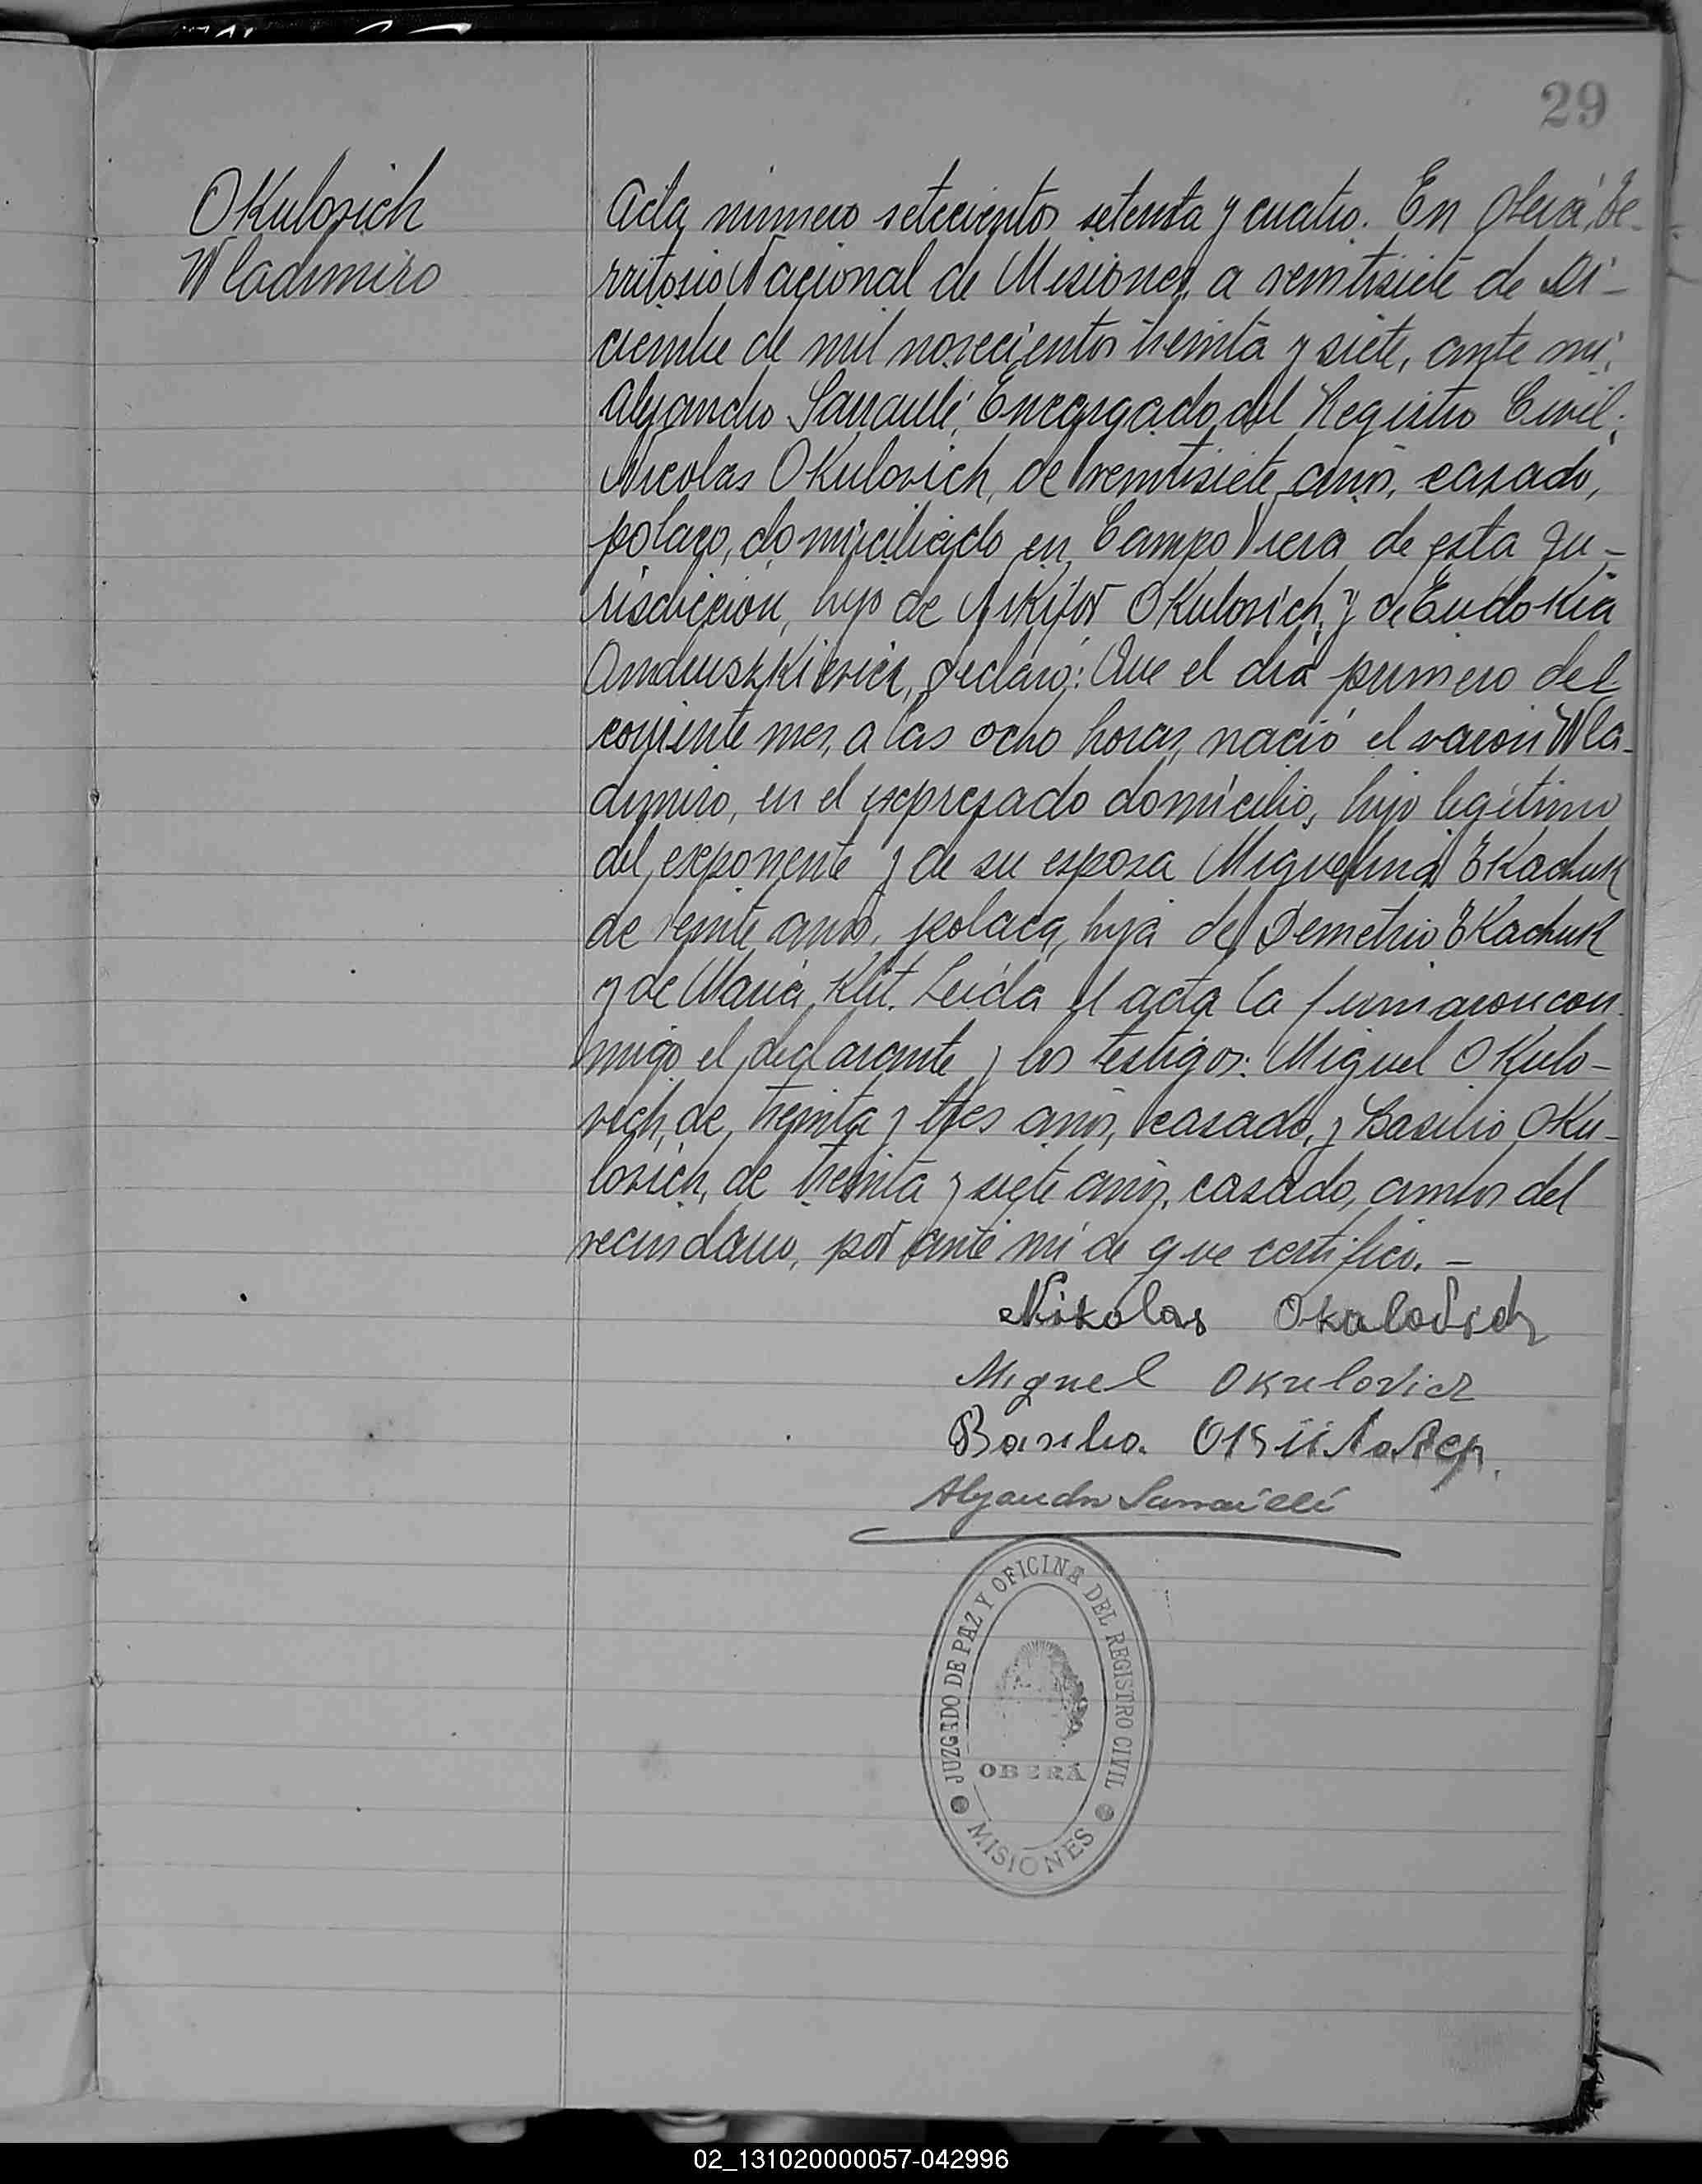 29
OKulovich
Wladimiro
Acta número setecientos setenta y cuatro. En Oberá, Te-
rritorio Nacional de Misiones, a veintisiete de Di-
ciembre de mil novecientos treinta y siete, ante mí,
Alejandro Sarraullé, Encargado del Registro Civil;
Nicolas OKulovich, de veintisiete años, casado,
polaco, domiciliado en Campo Viera de esta Ju-
risdiccion, hijo de NiKifor OKulovich, y de EudoKia
AndruszKievicz, declaró: Que el día primero del
corriente mes, a las ocho horas, nació el varon Wla-
dimiro, en el expresado domicilio, hijo legítimo
del exponente y de su esposa Miguelina TKachuk
de veinte años, polaca, hija de Demetrio TKachuk
y de Maria Klit. Leída el acta la firmaron con-
migo el declarante y los testigos: Miguel OKulo-
vich, de treinta y tres años, casado, y Basilio OKu-
lovich, de treinta y siete años, casado, ambos del
vecindario, por ante mí de que certifico. -
Nikolas Okulovich
Miguel Okulovich
Basilio
Alejandro
JUZGADO DE PAZ Y OFICINA DEL REGISTRO CIVIL
OBERÁ
MISIONES
02_131020000057-042996